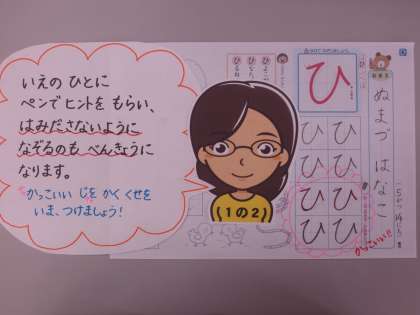 いえの ひとに
ペンで ヒントを もらい、
はみださないように
なぞるのも べんきょうに
なります。
かっこいい じを かく くせを
いま、つけましょう！
(1の2)
ひ
ひ ひ
ひ ひ
ひ ひ
ひ ひ
かっこいい!!
ぬまづ はなこ